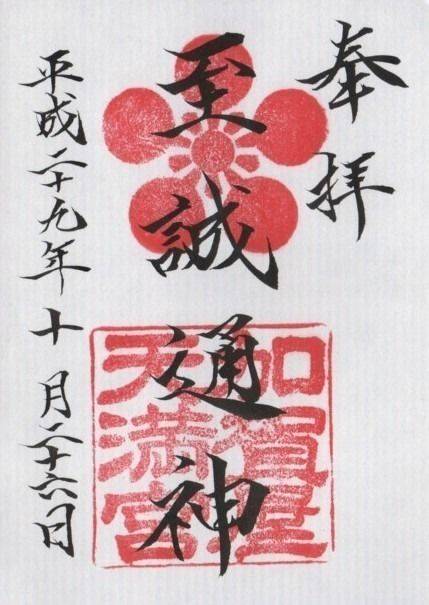 奉拝
至誠通神
加賀屋
天満宮
平成二十九年十月二十六日